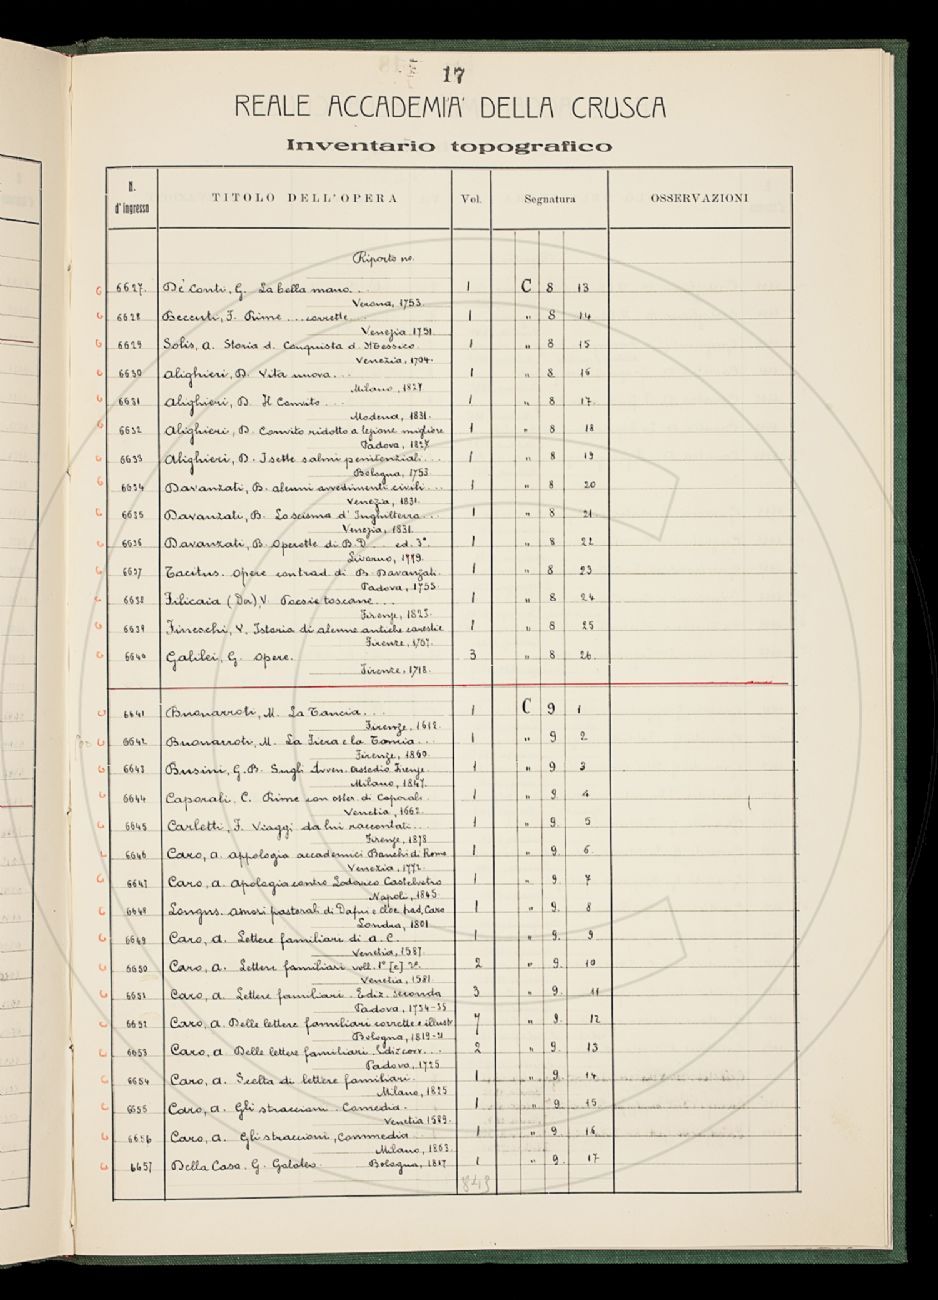 17
REALE ACCADEMIA DELLA CRUSCA
Inventario topografico
N. d'ingresso TITOLO DELL'OPERA Vol. Segnatura OSSERVAZIONI
Riporto no.
6627. De' Conti, G. La bella mano... 1 C 8 13
Verona, 1753.
6628 Beccuti, F. Rime ... corrette... 1 " 8 14
Venezia 1751.
6629 Solis, A. Storia d. Conquista d. Messico. 1 " 8 15
Venezia, 1704.
6630 Alighieri, D. Vita nuova... 1 " 8 16
Milano, 1827
6631 Alighieri, D. Il Convito... 1 " 8 17.
Modena, 1831.
6632 Alighieri, D. Convito ridotto a lezione migliore 1 " 8 18
Padova, 1827.
6633 Alighieri, D. I sette salmi penitenziali... 1 " 8 19
Bologna, 1753
6634 Davanzati, B. alcuni avvedimenti civili... 1 " 8 20
Venezia, 1831.
6635 Davanzati, B. Lo scisma d'Inghilterra... 1 " 8 21
Venezia, 1831.
6636 Davanzati, B. Operette di B. D... ed. 3ª 1 " 8 22
Livorno, 1779.
6637 Tacitus. Opere con trad. di B. Davanzati. 1 " 8 23
Padova, 1755.
6638 Filicaia (Da), V. Poesie toscane... 1 " 8 24
Firenze, 1823.
6639 Fineschi, V. Istoria di alcune antiche carestie 1 " 8 25
Firenze, 1767.
6640 Galilei, G. Opere. 3 " 8 26.
Firenze, 1718.
6641 Buonarroti, M. La Tancia... 1 C 9 1
Firenze, 1612.
6642 Buonarroti, M. La Fiera e la Tancia... 1 " 9 2
Firenze, 1860.
6643 Busini, G. B. Sugli Avven. assedio Firenze. 1 " 9 3
Milano, 1847.
6644 Caporali, C. Rime con osser. di Caporali. 1 " 9 4
Venetia, 1662.
6645 Carletti, F. Viaggi da lui raccontati... 1 " 9. 5
Firenze, 1878
6646 Caro, A. Appologia accademici Banchi di Roma 1 " 9. 6.
Venezia, 1772.
6647 Caro, A. Apologia contro Lodovico Castelvetro 1 " 9. 7
Napoli, 1845
6648 Longus. Amori pastorali di Dafni e Cloe trad. Caro 1 " 9. 8
Londra, 1801
6649 Caro, A. Lettere familiari di A. C. 1 " 9. 9
Venetia, 1587.
6650 Caro, A. Lettere familiari voll. 1º [e] 2º. 2 " 9. 10
Venetia, 1581
6651 Caro, A. Lettere familiari. Ediz. seconda 3 " 9. 11
Padova, 1734-35
6652 Caro, A. Delle lettere familiari corrette e illustr 7 " 9. 12
Bologna, 1819-21
6653 Caro, A. Delle lettere familiari. Ediz. corr.... 2 " 9. 13
Padova, 1725
6654 Caro, A. Scelta di lettere familiari. 1 " 9. 14
Milano, 1825
6655 Caro, A. Gli straccioni. Comedia. 1 " 9. 15
Venetia 1589.
6656 Caro, A. Gli straccioni, Commedia 1 " 9. 16
Milano, 1863.
6657 Della Casa. G. Galateo. Bologna, 1817 1 " 9. 17
843